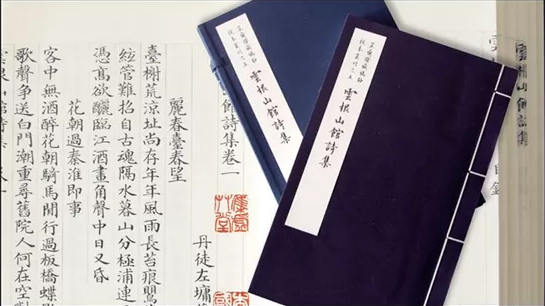 雲根山館詩集
目錄
校本叢刊之五
雲根山館詩集
校本叢刊之五
雲根山館詩集
館詩集卷一
丹徒左墉
麗春臺春望
臺榭荒涼址尚存年年風雨長苔痕鸎
絃管難招自古魂隔水暮山分極浦連
憑高欲釃臨江酒畫角聲中日又昏
花朝過秦淮即事
客中無酒醉花朝騎馬閒行過板橋蝶
歌聲爭送白門潮重尋舊院人何在空
雲根山館詩集